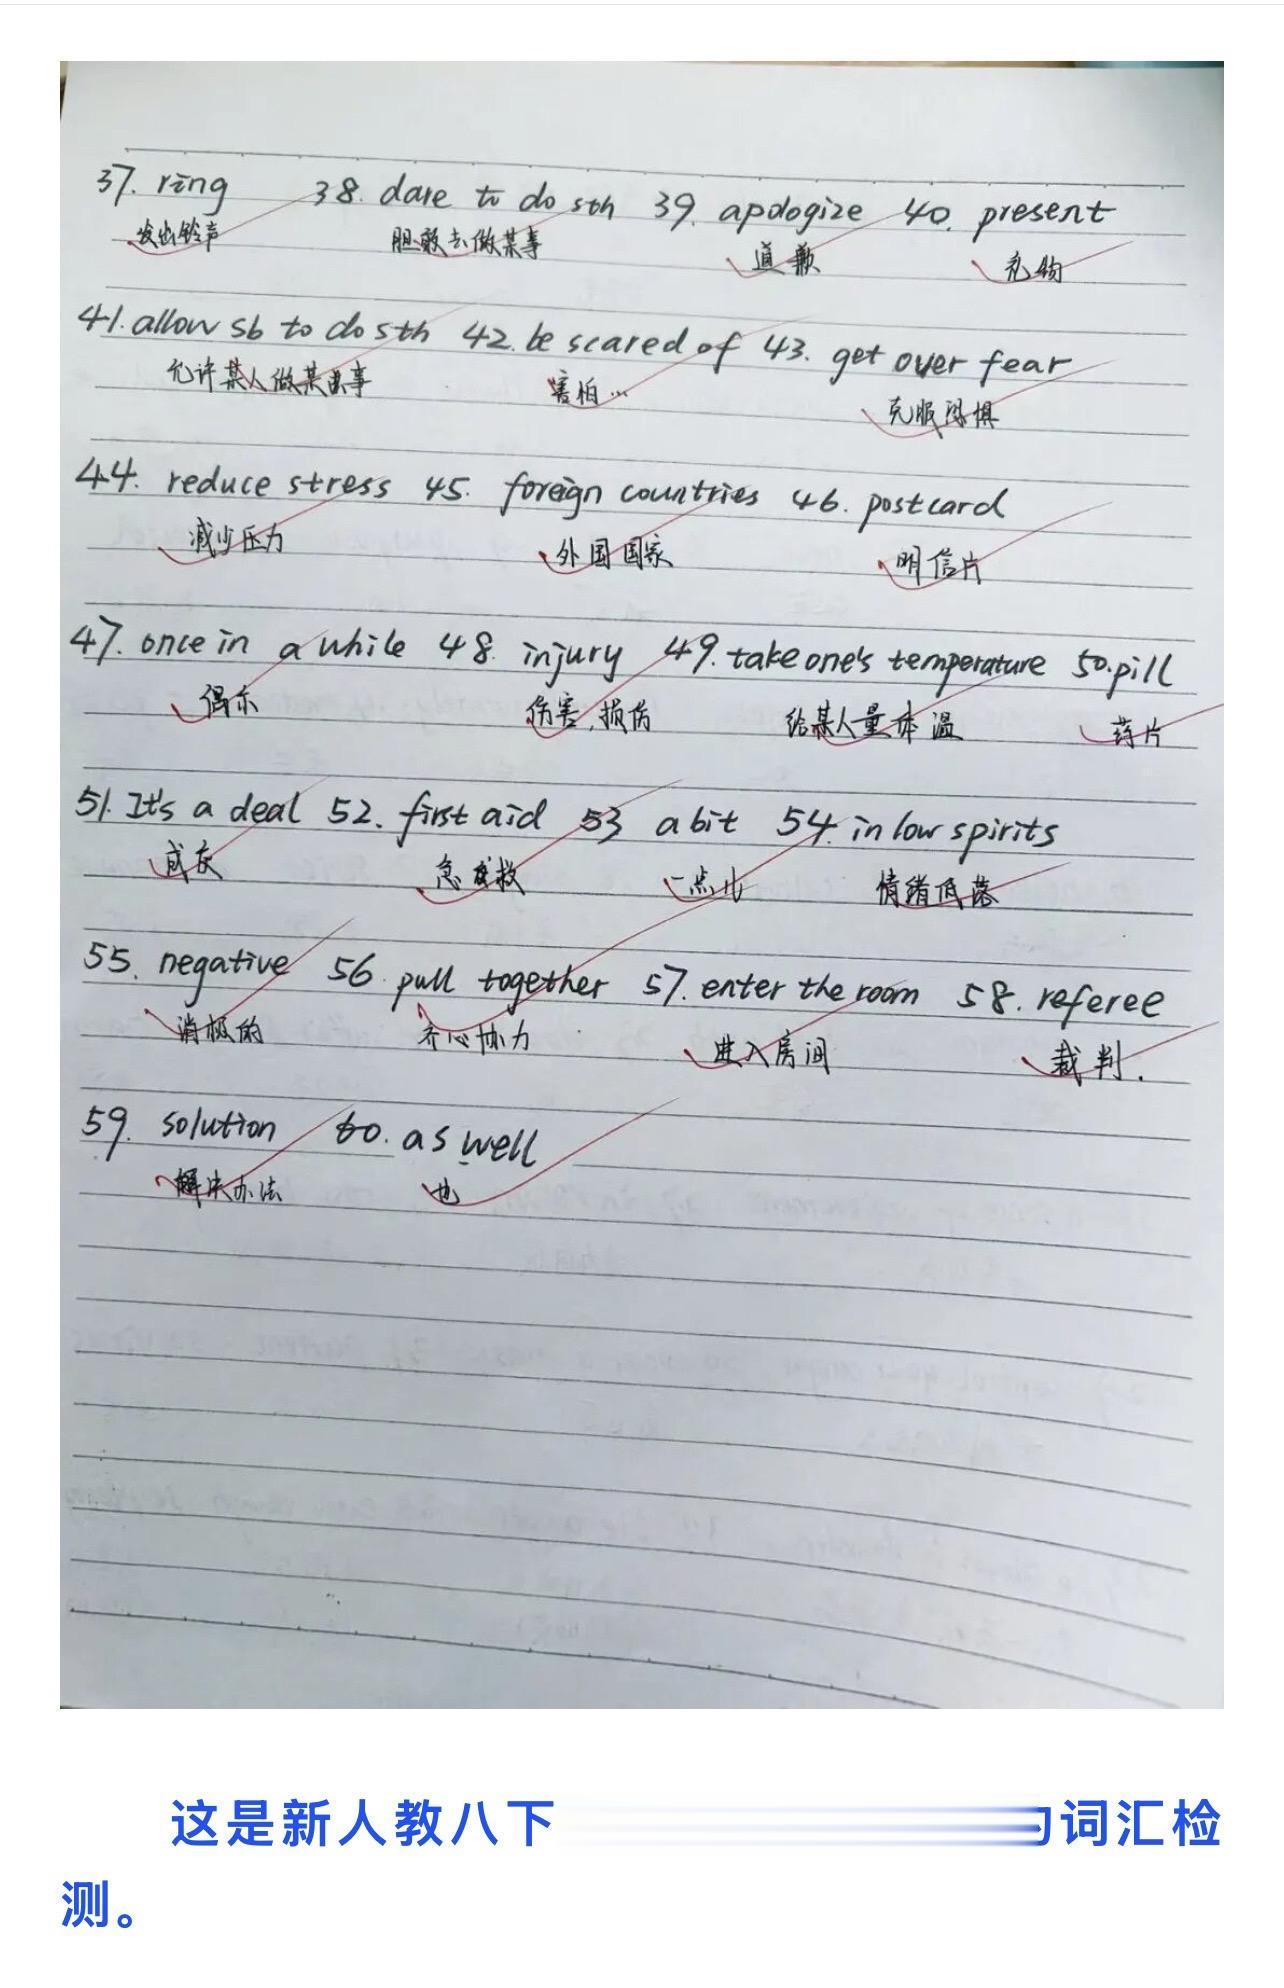 37. ring 38. dare to do sth 39. apologize 40. present
发出铃声 胆敢去做某事 道歉 礼物
41. allow sb to do sth 42. be scared of 43. get over fear
允许某人做某事 害怕… 克服恐惧
44. reduce stress 45. foreign countries 46. postcard
减少压力 外国国家 明信片
47. once in a while 48. injury 49. take one's temperature 50. pill
偶尔 伤害,损伤 给某人量体温 药片
51. It's a deal 52. first aid 53 a bit 54. in low spirits
成交 急救 一点儿 情绪低落
55. negative 56. pull together 57. enter the room 58. referee
消极的 齐心协力 进入房间 裁判.
59. solution 60. as well
解决办法 也
这是新人教八下 词汇检
测。